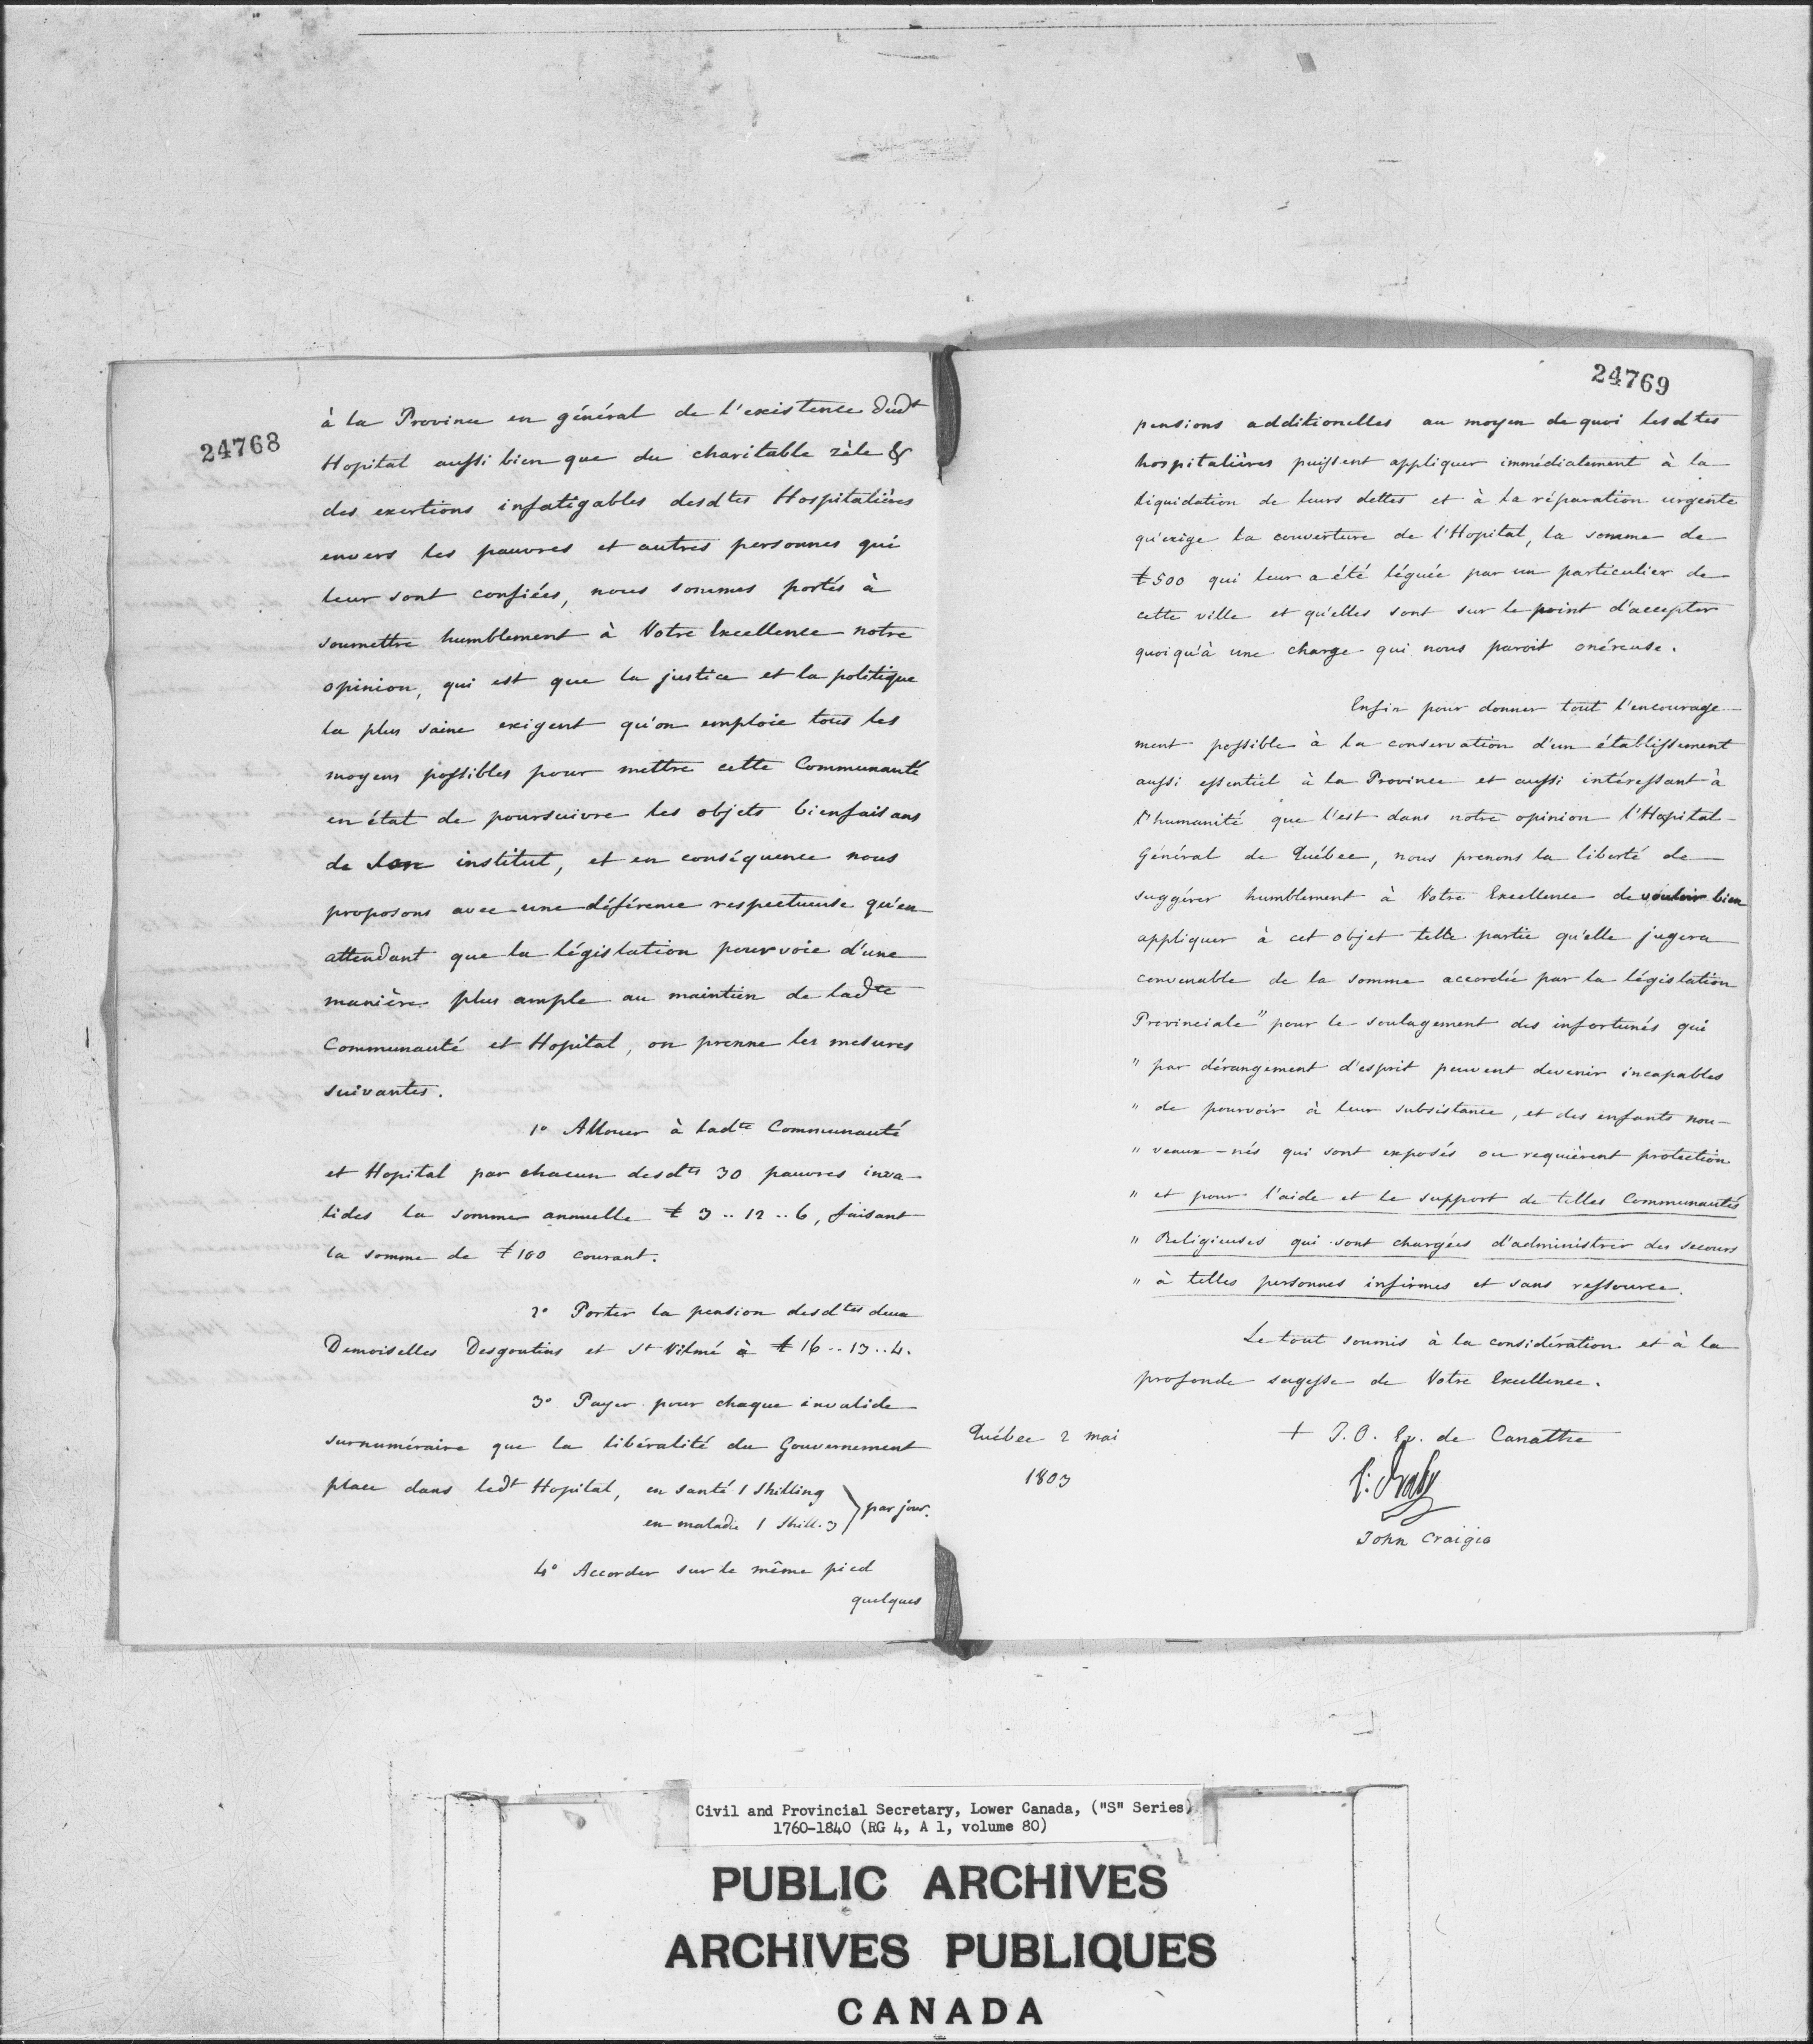 24768
à la Province en général de l'existence dudt
Hopital aussi bien que du charitable zèle &
des exertions infatigables desdtes Hospitalières
envers les pauvres et autres personnes qui
leur sont confiées, nous sommes portés à
soumettre humblement à Votre Excellence notre
opinion, qui est que la justice et la politique
la plus saine exigent qu'on emploie tous les
moyens possibles pour mettre cette Communauté
en état de poursuivre les objets bienfaisans
de son institut, et en conséquence nous
proposons avec une déférence respectueuse qu'en
attendant que la législation pourvoie d'une
manière plus ample au maintien de ladte
Communauté et Hopital, on prenne les mesures
suivantes.
1º Allouer à ladte Communauté
et Hopital par chacun desdts 30 pauvres inva-
lides la somme annuelle £ 3 .. 12 .. 6, faisant
la somme de £100 courant.
2º Porter la pension desdtes deux
Demoiselles Desgoutins et St Vilmé à £ 16 .. 13 .. 4.
3º Payer pour chaque invalide
surnuméraire que la libéralité du Gouvernement
place dans ledt Hopital, en santé 1 Shilling
en maladie 1 Shill. 3 } par jour.
4º Accorder sur le même pied
quelques
24769
pensions additionelles au moyen de quoi lesdtes
hospitalières puissent appliquer immédiatement à la
liquidation de leurs dettes et à la réparation urgente
qu'exige la couverture de l'Hopital, la somme de
£500 qui leur a été léguée par un particulier de
cette ville et qu'elles sont sur le point d'accepter
quoiqu'à une charge qui nous paroit onéreuse.
Enfin pour donner tout l'encourage-
ment possible à la conservation d'un établissement
aussi essentiel à la Province et aussi intéressant à
l'humanité que l'est dans notre opinion l'Hopital-
Général de Québec, nous prenons la liberté de
suggérer humblement à Votre Excellence de vouloir bien
appliquer à cet objet telle partie qu'elle jugera
convenable de la somme accordée par la législation
Provinciale "pour le soulagement des infortunés qui
" par dérangement d'esprit peuvent devenir incapables
" de pourvoir à leur subsistance, et des enfants nou-
" veaux-nés qui sont exposés ou requièrent protection
" et pour l'aide et le support de telles Communautés
" Religieuses qui sont chargées d'administrer des secours
" à telles personnes infirmes et sans ressource.
Le tout soumis à la considération et à la
profonde sagesse de Votre Excellence.
Québec 2 mai
1803
+ J. O. Ev. de Canathe
John Craigie
Civil and Provincial Secretary, Lower Canada, ("S" Series)
1760-1840 (RG 4, A 1, volume 80)
PUBLIC ARCHIVES
ARCHIVES PUBLIQUES
CANADA